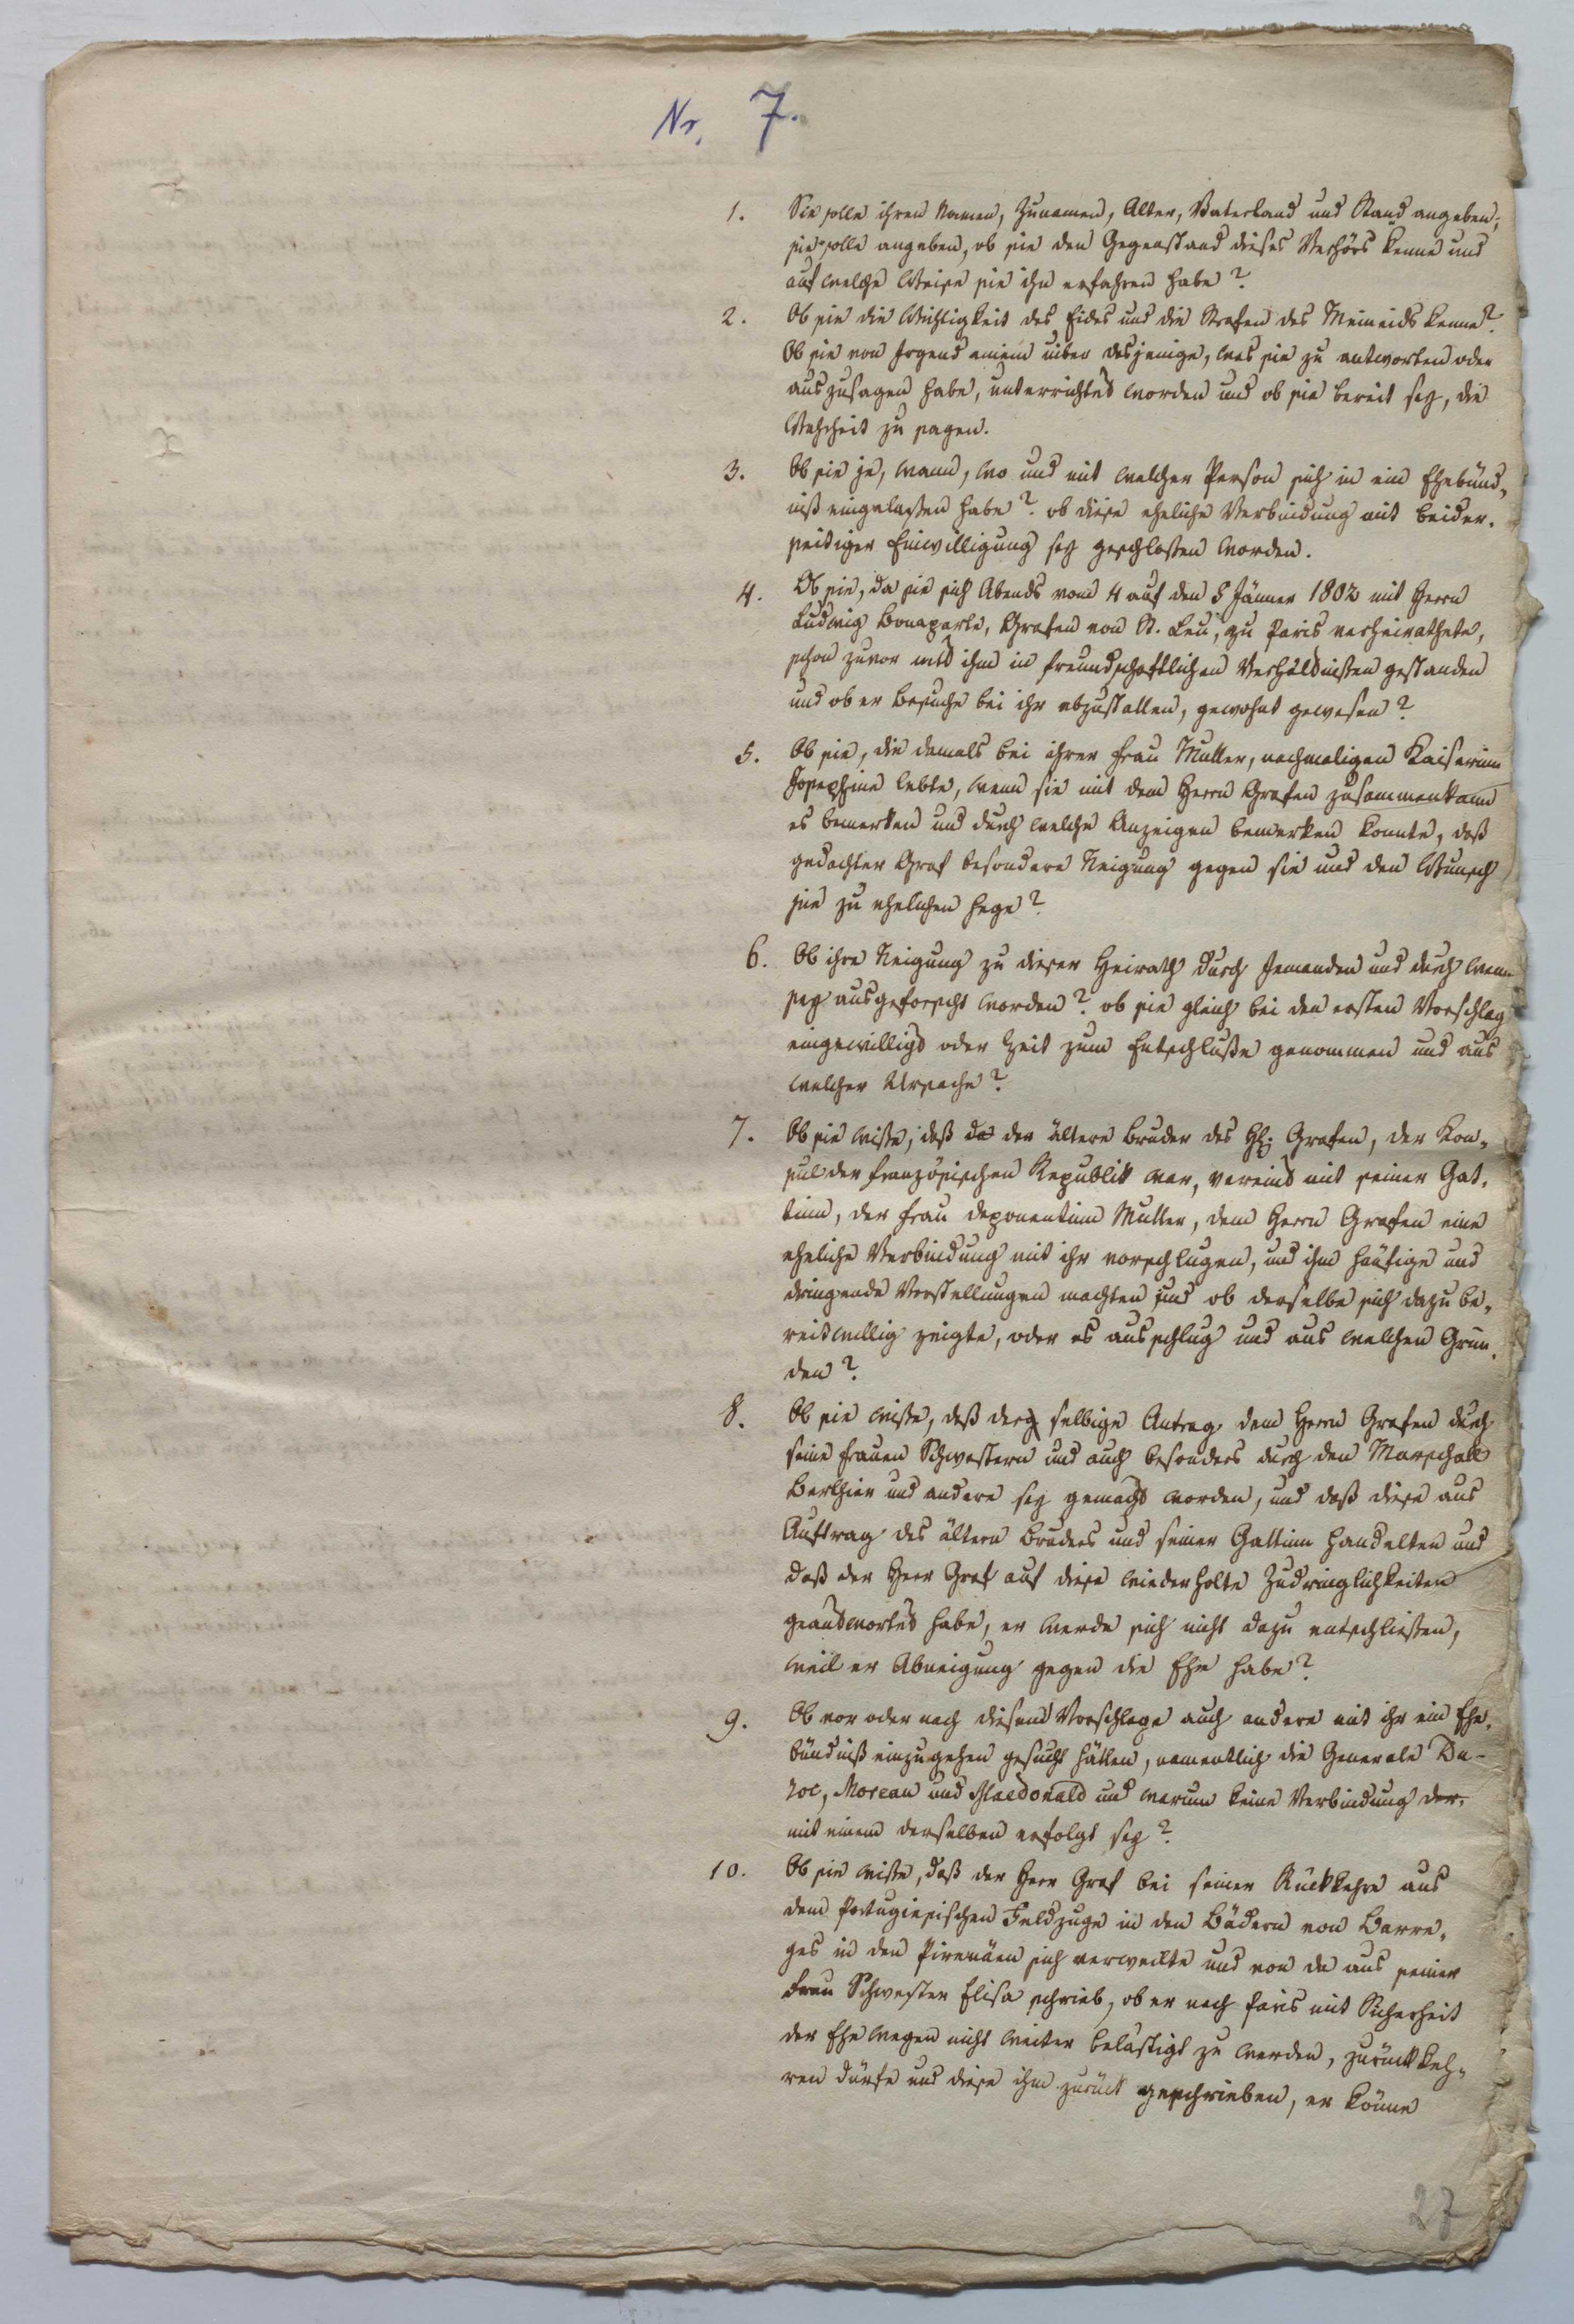 Nr. 7.
1. Sie solle ihren Namen, Zunamen, Alter, Vaterland und Stand angeben;
sie solle angeben, ob sie den Gegenstand dieses Verhörs kenne und
auf welche Weise sie ihn erfahren habe?
2. Ob sie die Wichtigkeit des Eides und die Strafen des Meineids kenne?
Ob sie von Irgend einem über dasjenige, was sie zu antworten oder
auszusagen habe, unterrichtet worden und ob sie bereit sey, die
Wahrheit zu sagen.
3. Ob sie je, wann, wo und mit welcher Person sich in ein Ehebünd„
niß eingelaßen habe? ob diese eheliche Verbindung mit beider„
seitiger Einwilligung sey geschloßen worden.
4. Ob sie, da sie sich Abends vom 4 auf den 5 Jänner 1802 mit Herrn
Ludwig Bonaparte, Grafen von St. Leu, zu Paris verheirathete,
schon zuvor mit ihm in freundschaftlichen Verhältnißen gestanden
und ob er Besuche bei ihr abzustatten, gewohnt gewesen?
5. Ob sie, die damals bei ihrer Frau Mutter, nachmaligen Kaiserinn
Josephine lebte, wenn sie mit dem Herrn Grafen zusammenkam
es bemerken und durch welche Anzeigen bemerken konnte, daß
gedachter Graf besondere Neigung gegen sie und den Wunsch
sie zu ehelichen hege?
6. Ob ihre Neigung zu dieser Heirath durch Jemanden und durch wem
sey ausgeforscht worden? ob sie gleich bei den ersten Vorschlag
eingewilligt oder Zeit zum Entschluße genommen und aus
welcher Ursache?
7. Ob sie wiße, daß da der ältere Bruder des H. Grafen, der Kon„
sul der französischen Republik war, vereint mit seiner Gat„
tinn, der Frau Deponentinn Mutter, dem Herrn Grafen eine
eheliche Verbindung mit ihr vorschlugen, und ihm häufige und
dringende Vorstellungen machten und ob derselbe sich dazu be„
reitwillig zeigte, oder es ausschlug und aus welchen Grün„
den?
8. Ob sie wiße, daß der selbige Antrag dem Herrn Grafen durch
seine Frauen Schwestern und auch besonders durch den Marschall
Berthier und andere sey gemacht worden, und daß diese aus
Auftrag des ältern Bruders und seiner Gattinn handelten und
daß der Herr Graf auf diese wiederholte Zudringlichkeiten
geantwortet habe, er werde sich nicht dazu entschließen,
weil er Abneigung gegen die Ehe habe?
9. Ob vor oder nach diesem Vorschlage auch andere mit ihr ein Ehe„
bündniß einzugehen gesucht hätten, namentlich die Generale Du-
roc, Moreau und Macdonald und warum keine Verbindung der„
mit einem derselben erfolgt sey?
10. Ob sie wiße, daß der Herr Graf bei seiner Rückkehre aus
dem Portugiesischen Feldzuge in den Bädern von Barre„
ges in den Pirenäen sich verweilte und von da aus seiner
Frau Schwester Elisa schrieb, ob er nach Paris mit Sicherheit
der Ehe wegen nicht weiter belästigt zu werden, zurückkeh„
ren dürfe und diese ihm zurück geschrieben, er könne
27